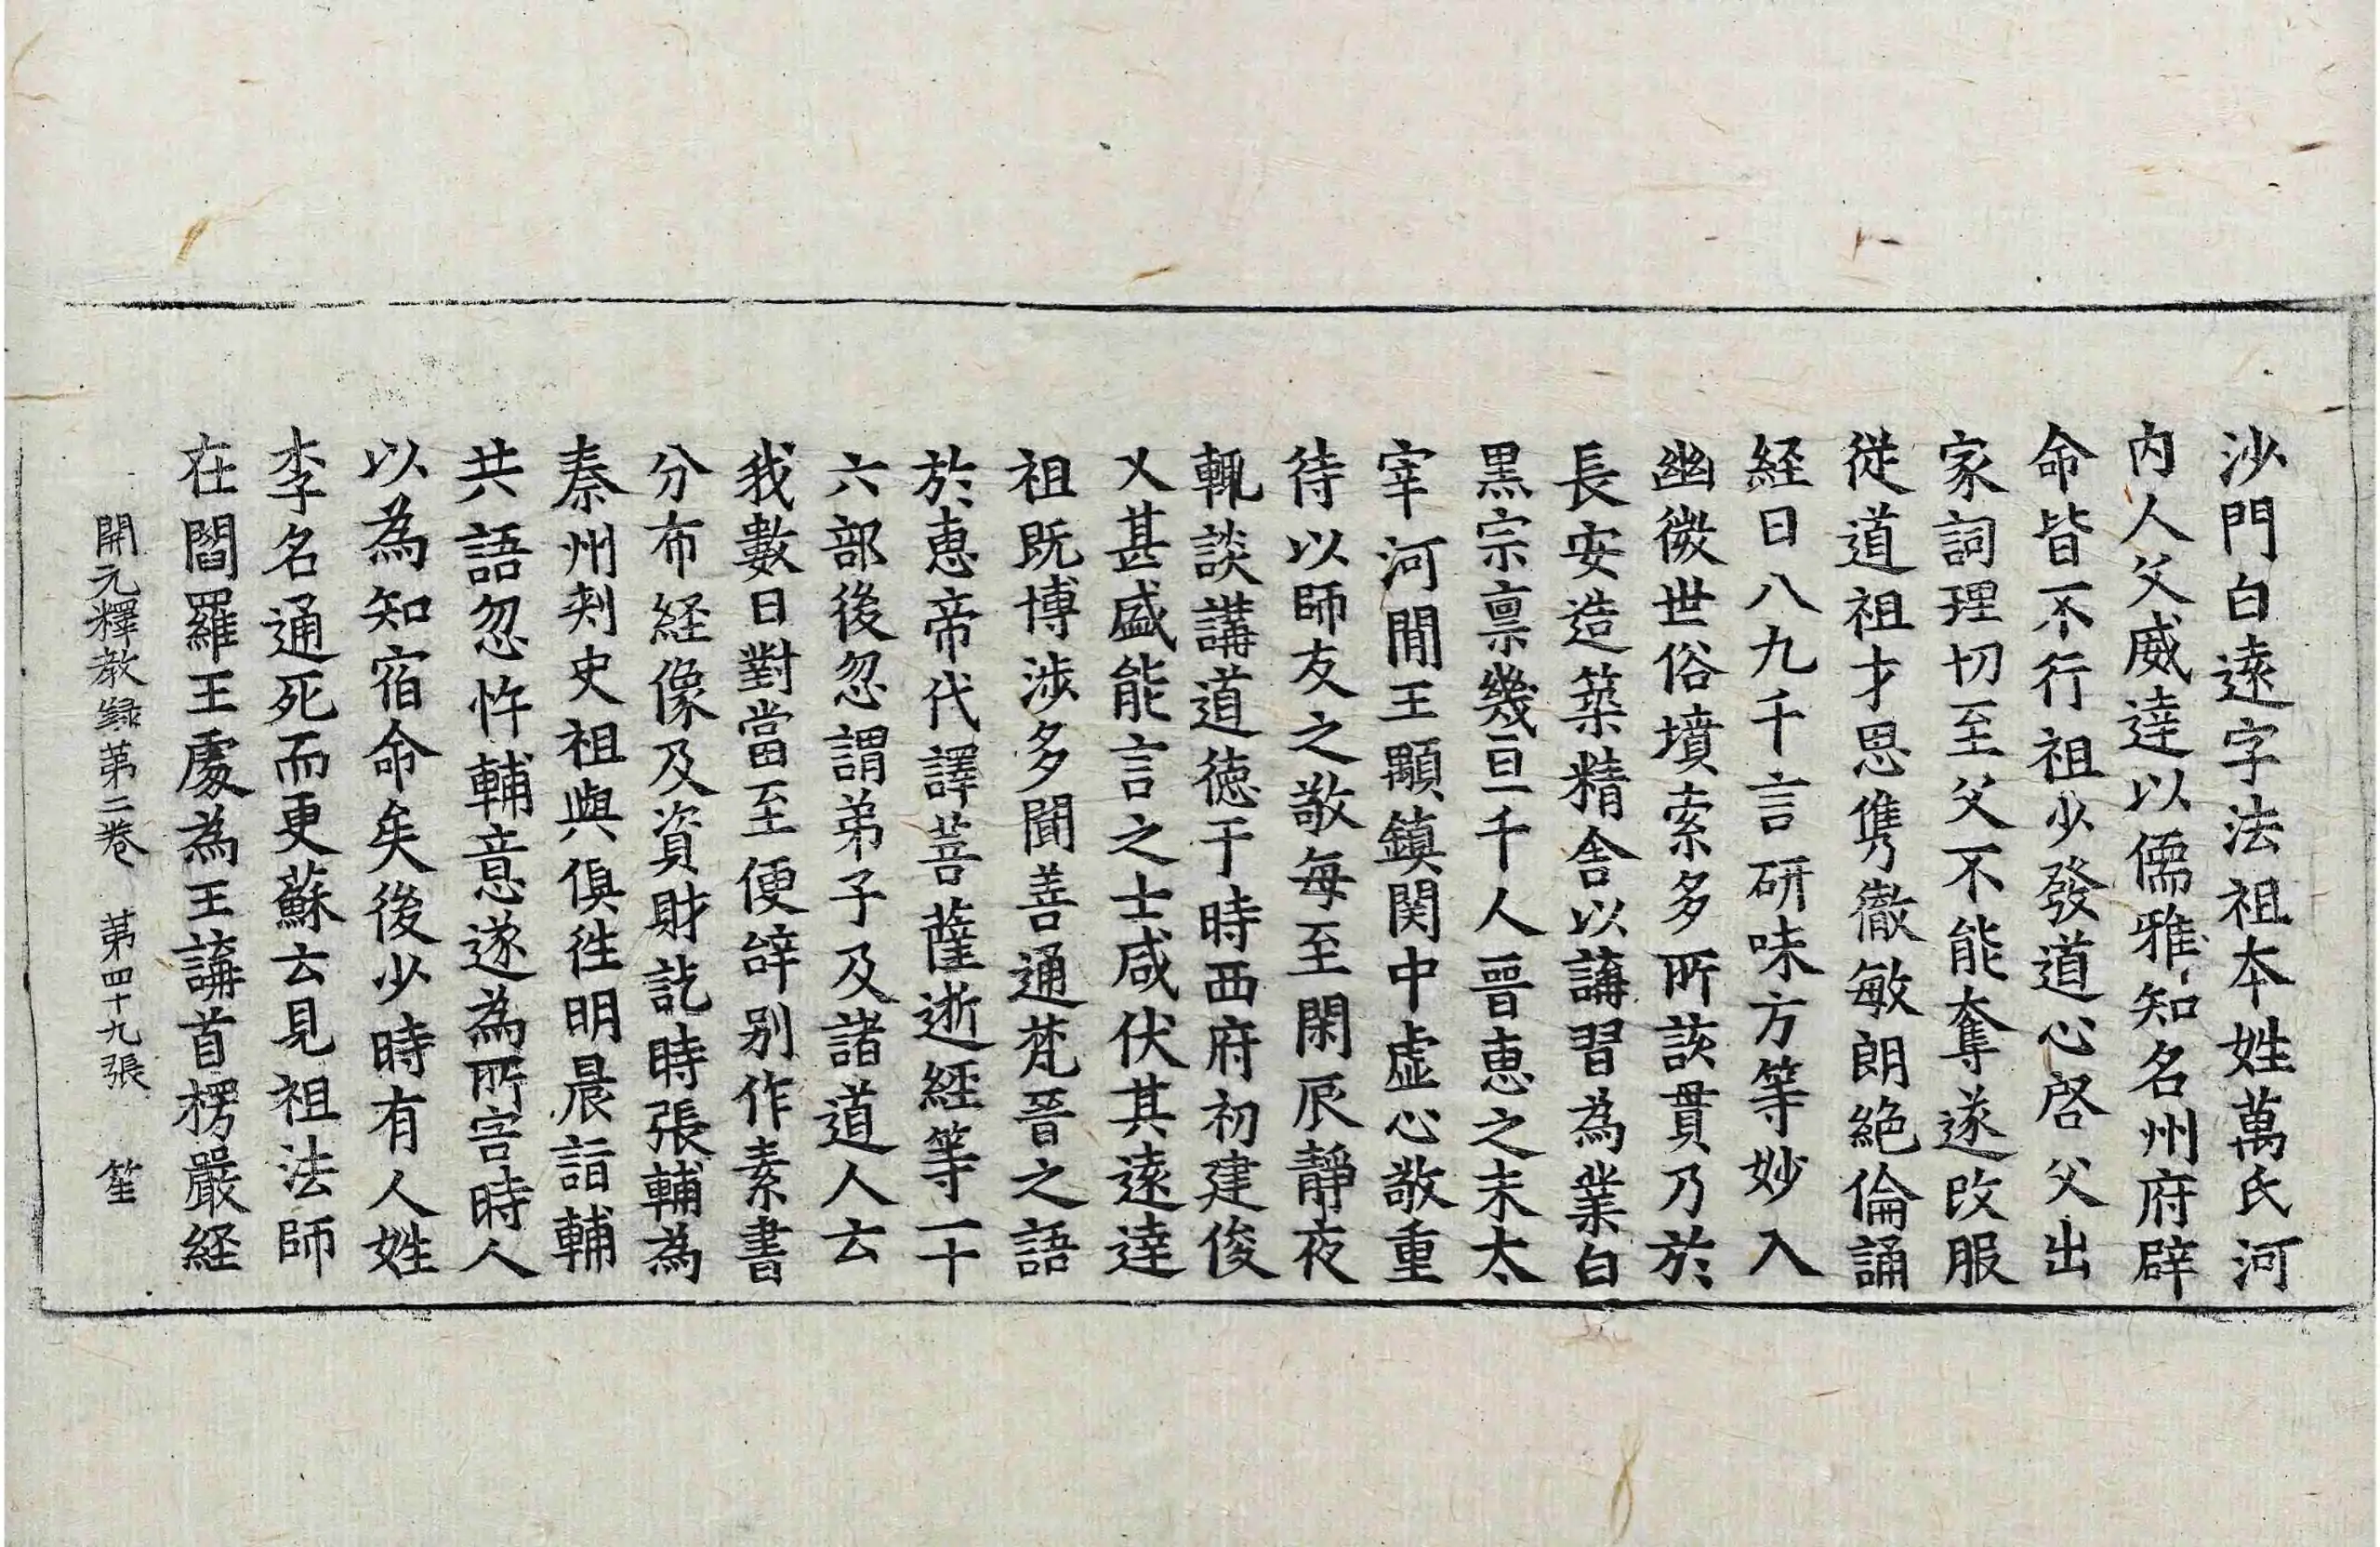 沙門白遠字法祖本姓萬氏河
内人父威逹以儒雅知名州府辟
命皆不行祖少發道心啓父出
家詞理切至父不能奪遂改服
從道祖才思雋徹敏朗絶倫誦
経日八九千言研味方等妙入
幽微世俗墳索多所該貫乃於
長安造築精舎以講習為業白
黒宗禀幾亘千人晋恵之末太
宰河間王顒鎮関中虚心敬重
待以師友之敬每至閑辰靜夜
輒談講道徳于時西府初建俊
乂甚盛能言之士咸伏其遠逹
祖既博涉多聞善通梵晋之語
於恵帝代譯菩薩逝経等一十
六部後忽謂弟子及諸道人云
我數日對當至便辝别作素書
分布経像及資財訖時張輔為
秦州刾史祖與俱徃明晨詣輔
共語忽忤輔意遂為所害時人
以為知宿命矣後少時有人姓
李名通死而更蘇云見祖法師
在閻羅王處為王講首楞嚴経
開元釋教錄第二卷 苐四十九張 笙